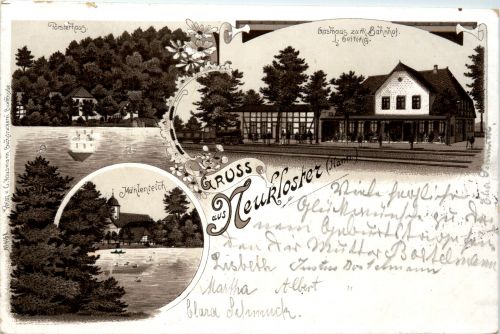 Forsthaus.
Gasthaus zum Bahnhof.
Mühlenteich
GRUSS
aus Neukloster (Hann.)
Viele herzliche
Glückwünsche zu dei-
nem Geburtstage sen-
den dir Mutter Bostelmann
Lisbeth Justus Bostelmann
Martha Albert
Clara Schmuck.